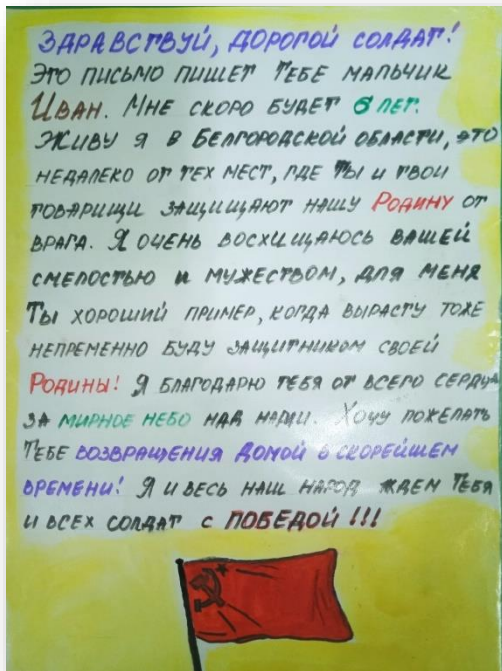 ЗДРАВСТВУЙ, ДОРОГОЙ СОЛДАТ!
ЭТО ПИСЬМО ПИШЕТ ТЕБЕ МАЛЬЧИК
ИВАН. МНЕ СКОРО БУДЕТ 6 ЛЕТ.
ЖИВУ Я В БЕЛГОРОДСКОЙ ОБЛАСТИ, ЭТО
НЕДАЛЕКО ОТ ТЕХ МЕСТ, ГДЕ ТЫ И ТВОИ
ТОВАРИЩИ ЗАЩИЩАЮТ НАШУ РОДИНУ ОТ
ВРАГА. Я ОЧЕНЬ ВОСХИЩАЮСЬ ВАШЕЙ
СМЕЛОСТЬЮ И МУЖЕСТВОМ, ДЛЯ МЕНЯ
ТЫ ХОРОШИЙ ПРИМЕР, КОГДА ВЫРАСТУ ТОЖЕ
НЕПРЕМЕННО БУДУ ЗАЩИТНИКОМ СВОЕЙ
РОДИНЫ! Я БЛАГОДАРЮ ТЕБЯ ОТ ВСЕГО СЕРДЦА
ЗА МИРНОЕ НЕБО НАД НАМИ. ХОЧУ ПОЖЕЛАТЬ
ТЕБЕ ВОЗВРАЩЕНИЯ ДОМОЙ В СКОРЕЙШЕМ
ВРЕМЕНИ! Я И ВЕСЬ НАШ НАРОД ЖДЕМ ТЕБЯ
И ВСЕХ СОЛДАТ С ПОБЕДОЙ!!!